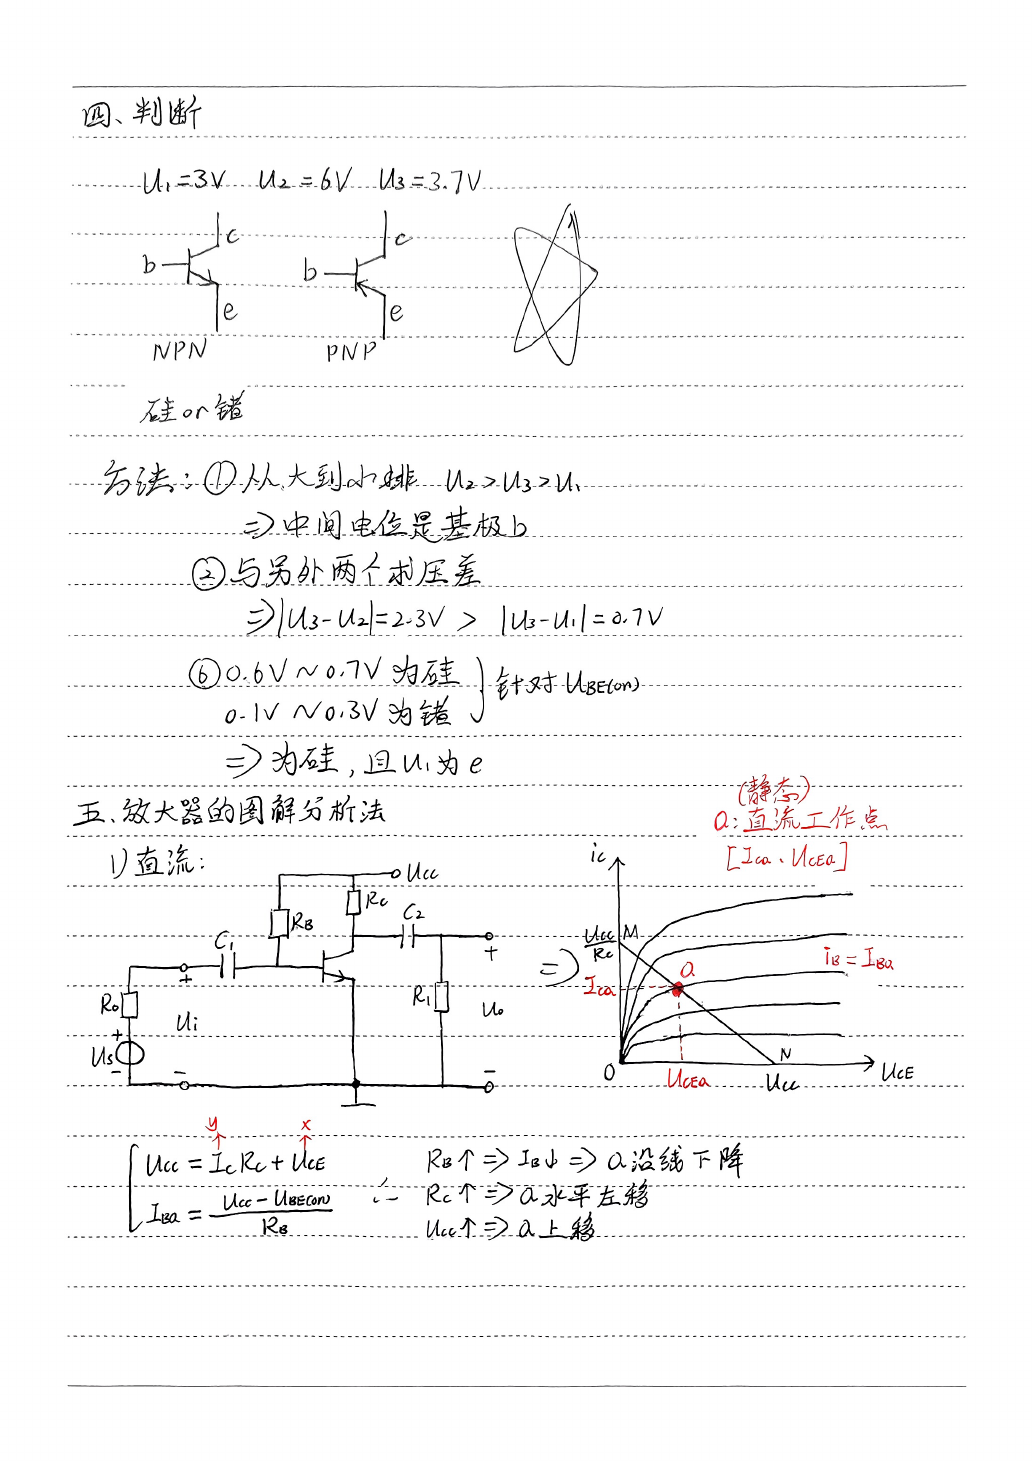 四、判断
U₁=3V U₂=6V U₃=3.7V
c c
b b
e e
NPN PNP
硅or锗
方法：①从大到小排 U₂>U₃>U₁
⇒中间电位是基极b
②与另外两个求压差
⇒|U₃-U₂|=2.3V > |U₃-U₁|=0.7V
⑥0.6V~0.7V为硅
0.1V~0.3V为锗 } 针对UBE(on)
⇒为硅，且U₁为e
五、放大器的图解分析法
(静态)
Q：直流工作点
[ICQ、UCEQ]
1)直流：
UCC
RC
RB
C₂
C₁
+ +
R₀
R₁
Ui
Uo
+
Us
- - -
⇒
iC
UCC/RC
M
Q
iB=IBQ
ICQ
N
O
UCEQ
UCC
UCE
y x
UCC=ICRC+UCE
IBQ=(UCC-UBE(on))/RB
∴ RB↑⇒IB↓⇒Q沿线下降
RC↑⇒Q水平左移
UCC↑⇒Q上移